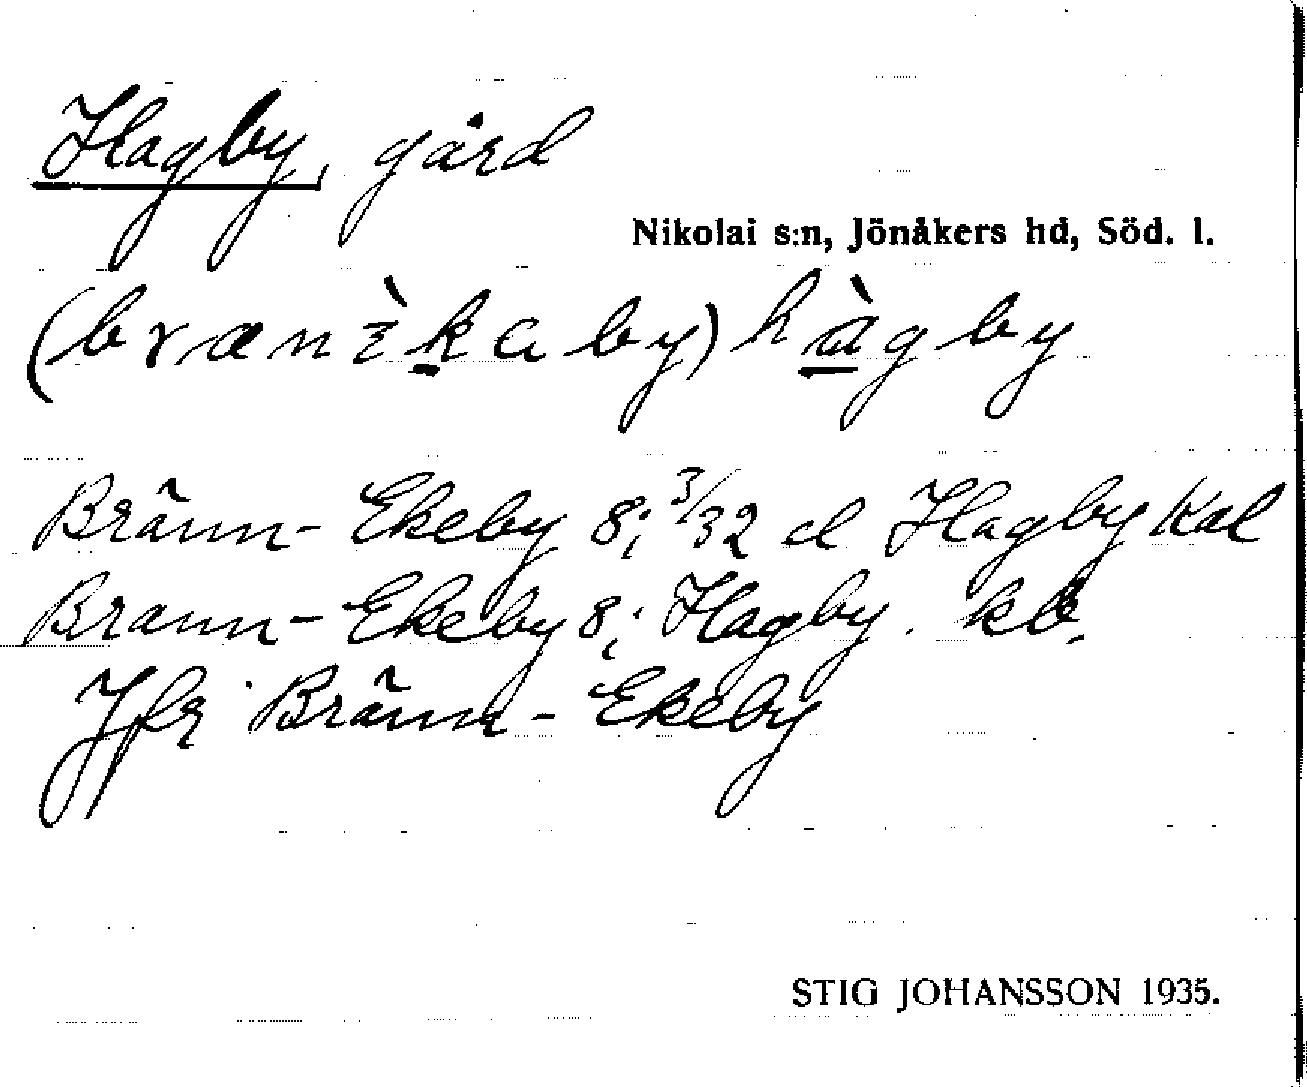 Hagby, gård
Nikolai s:n, Jönåkers hd, Söd. l.
hàgby
Bränn-Ekeby 8; 3/32 d Hagby Kal
Brann-Ekeby 8; Hagby. kb.
Jfr Bränn-Ekeby
STIG JOHANSSON 1935.